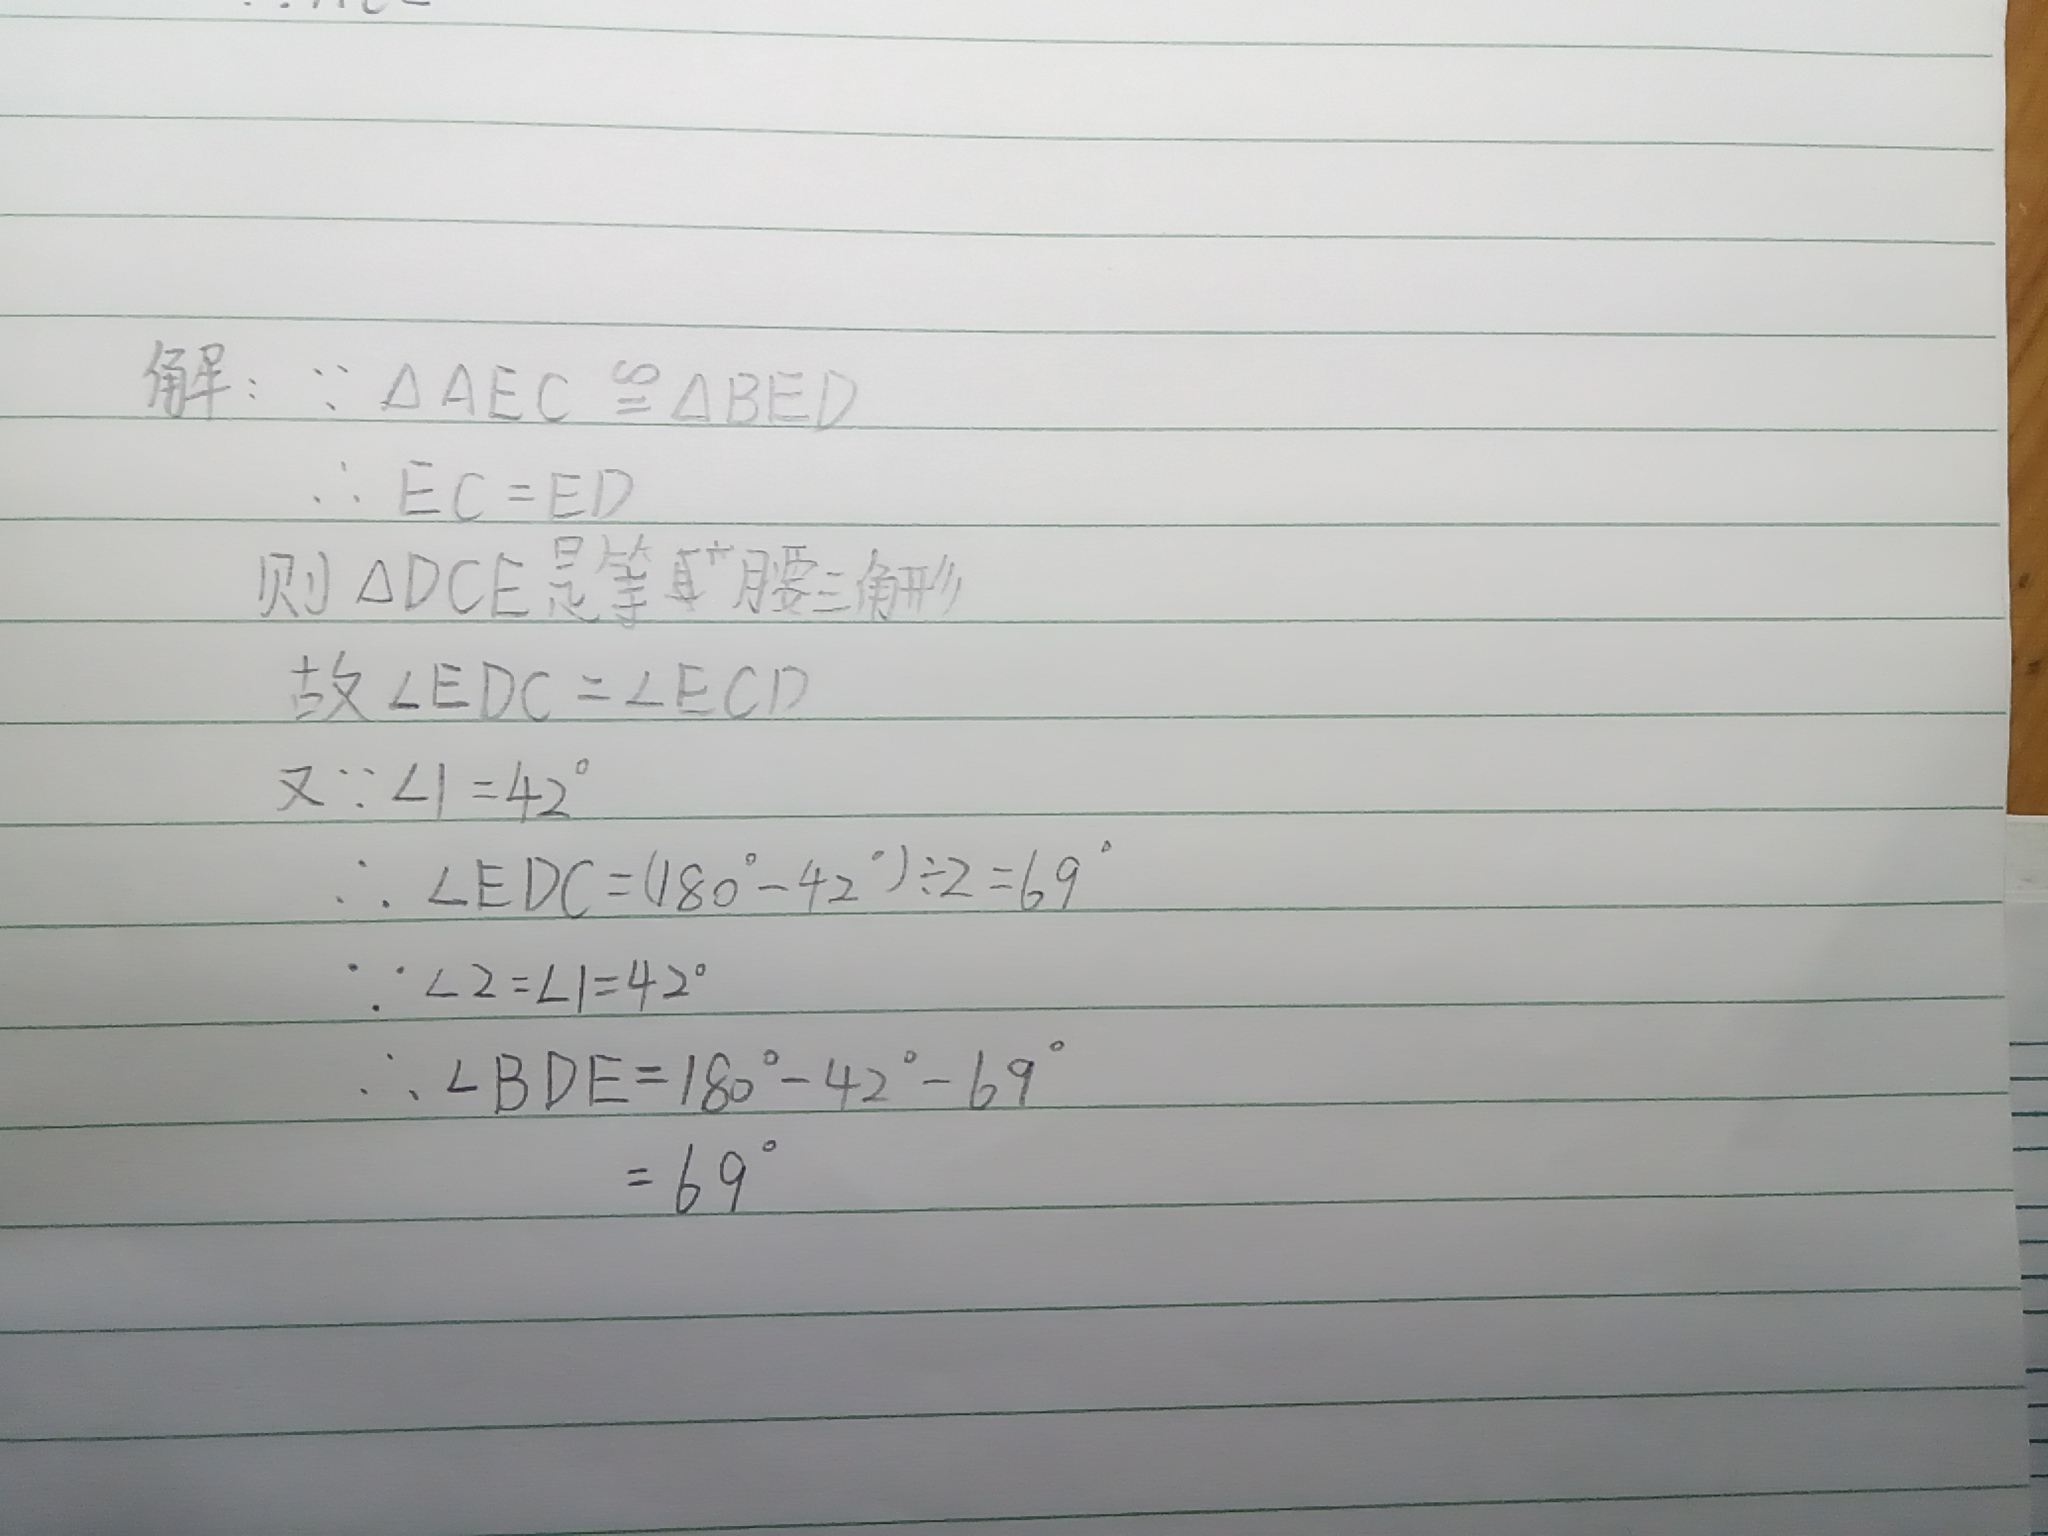 解：∵△AEC≌△BED
∴EC=ED
则△DCE是等腰三角形
故∠EDC=∠ECD
又∵∠1=42°
∴∠EDC=(180°-42°)÷2=69°
∵∠2=∠1=42°
∴∠BDE=180°-42°-69°
=69°